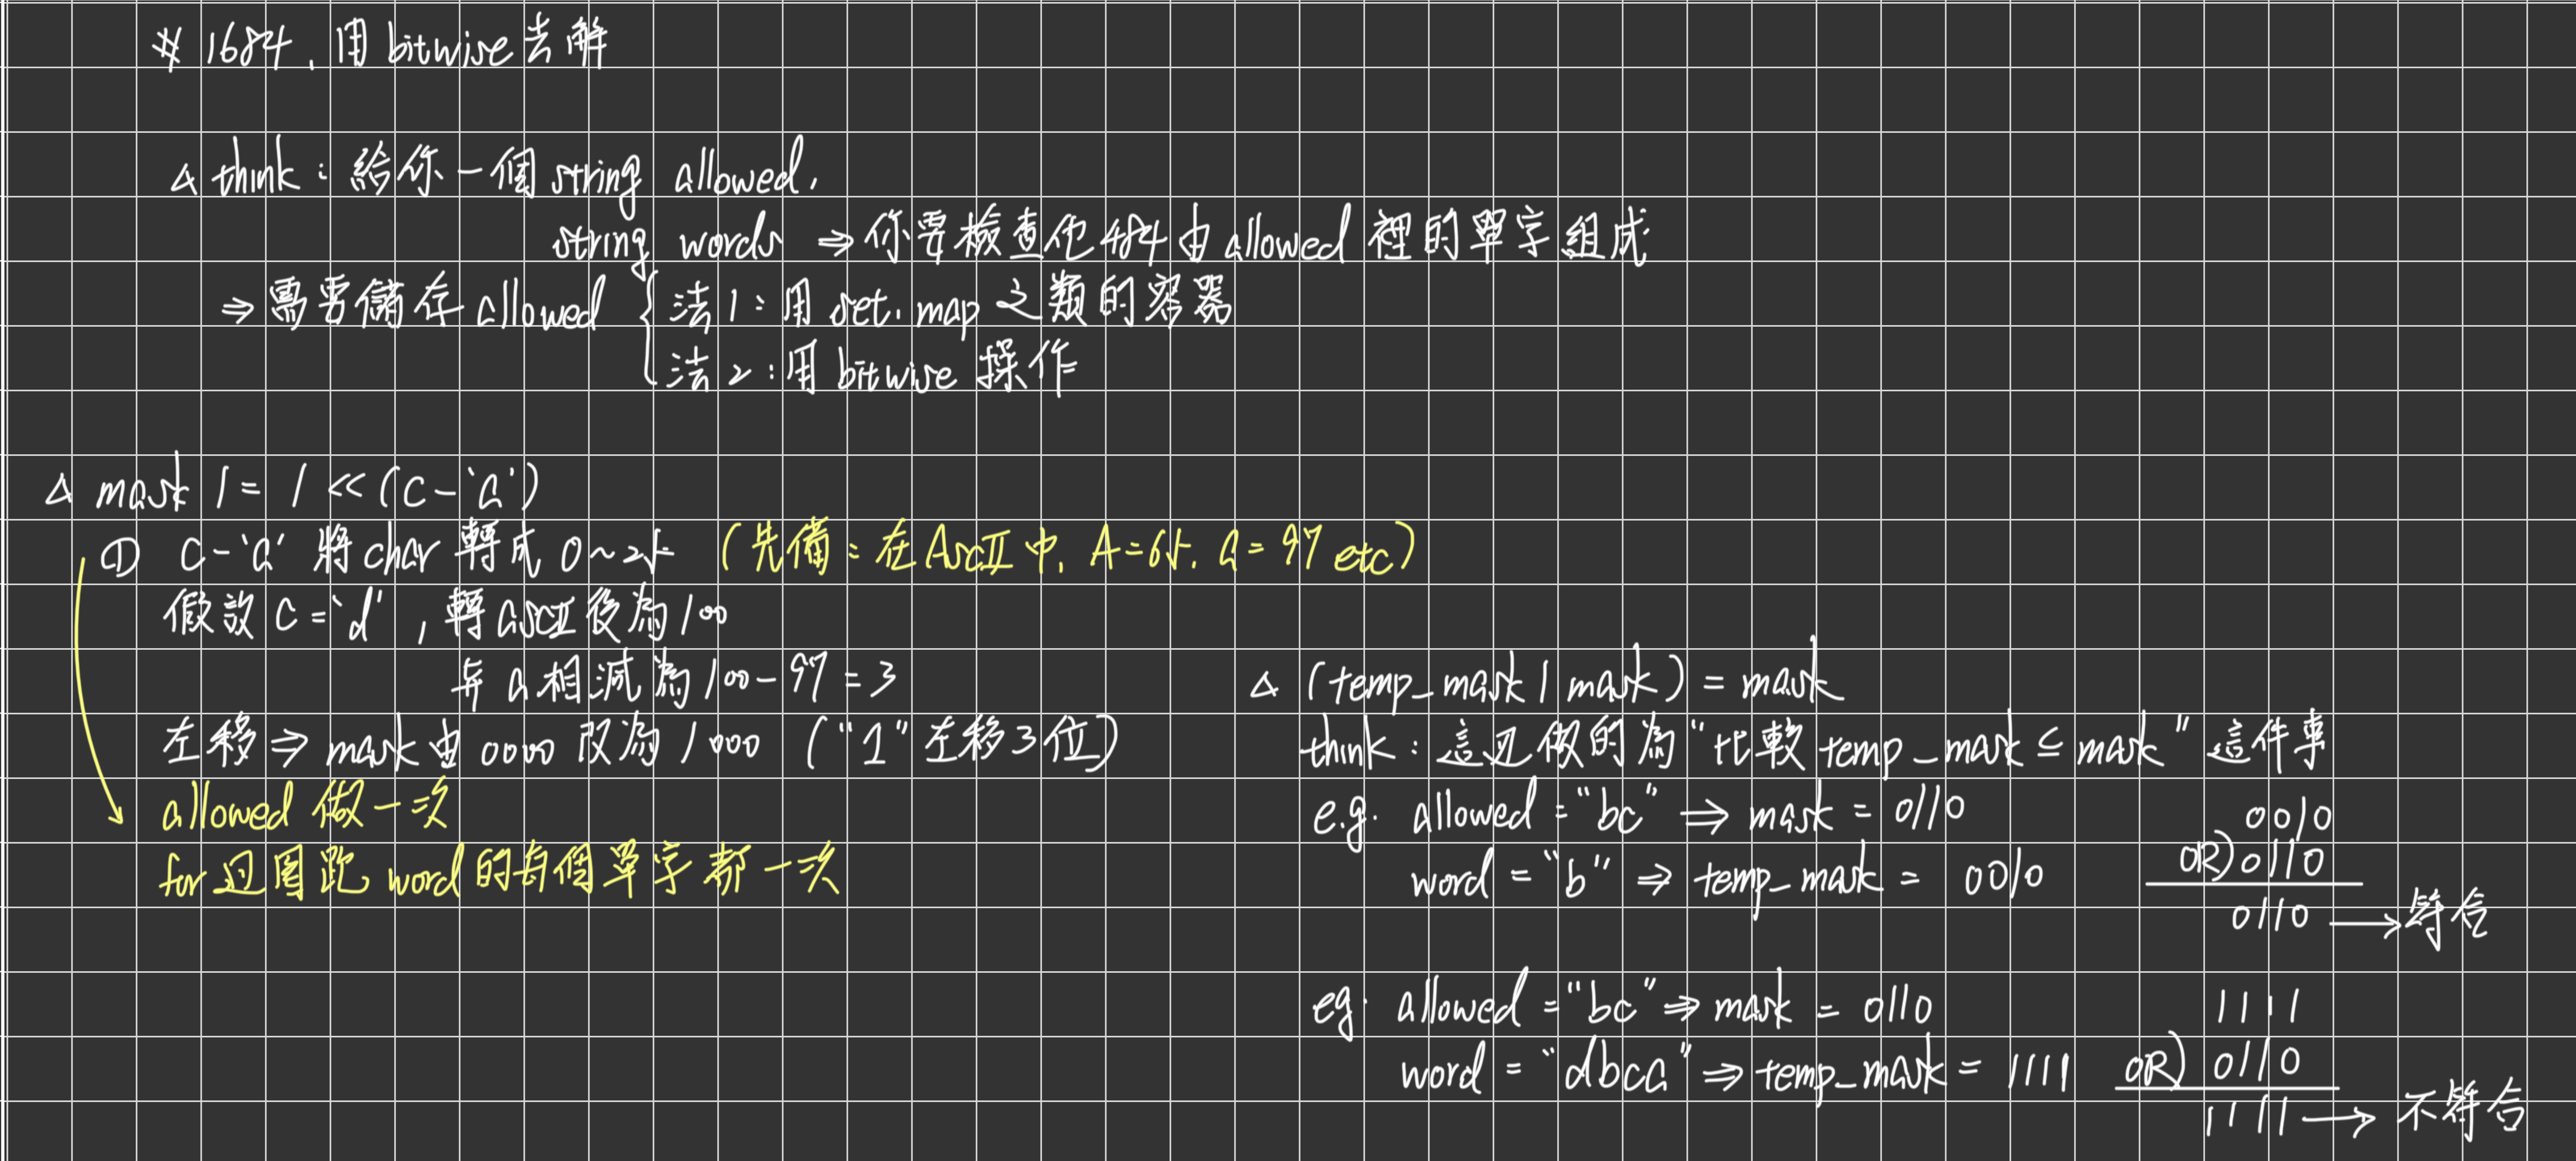 # 1684. 用 bitwise 去解
△ think : 給你一個 string allowed,
string words ⇒ 你要檢查他 484 由 allowed 裡的單字組成
⇒ 需要儲存 allowed { 法1 : 用 set. map 之類的容器
法2 : 用 bitwise 操作
△ mask |= 1 << (c-'a')
① c-'a' 將 char 轉成 0~25 (先備 : 在 ASCII 中, A=65. a=97 etc)
假設 c='d' , 轉 ASCII 後為 100
與 a 相減為 100-97=3
左移 ⇒ mask 由 0000 改為 1000 ("1" 左移 3 位)
allowed 做一次
for 迴圈跑 word 的每個單字都一次
△ (temp_mask | mask) = mask
think : 這边做的為 "比較 temp_mask ⊆ mask" 這件事
e.g. allowed = "bc" ⇒ mask = 0110 0010
word = "b" ⇒ temp_mask = 0010 OR) 0110
0110 → 符合
eg. allowed = "bc" ⇒ mask = 0110 1111
word = "dbca" ⇒ temp_mask = 1111 OR) 0110
1111 → 不符合